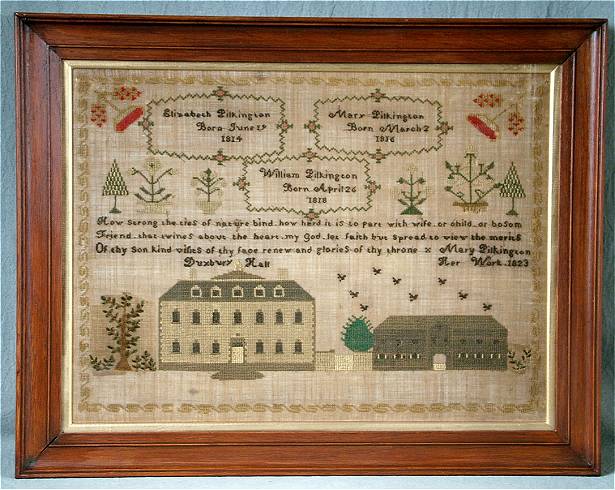 Elizabeth Pilkington
Born June 19
1814
Mary Pilkington
Born March 2
1816
William Pilkington
Born April 26
1818
How strong the ties of nature bind how hard it is to part with wife or child or bosom
Friend that twines about the heart my god let faith but spread to view the merits
Of thy son kind visits of thy face renew and glories of thy throne x Mary Pilkington
Duxbury Hall
Her Work 1823